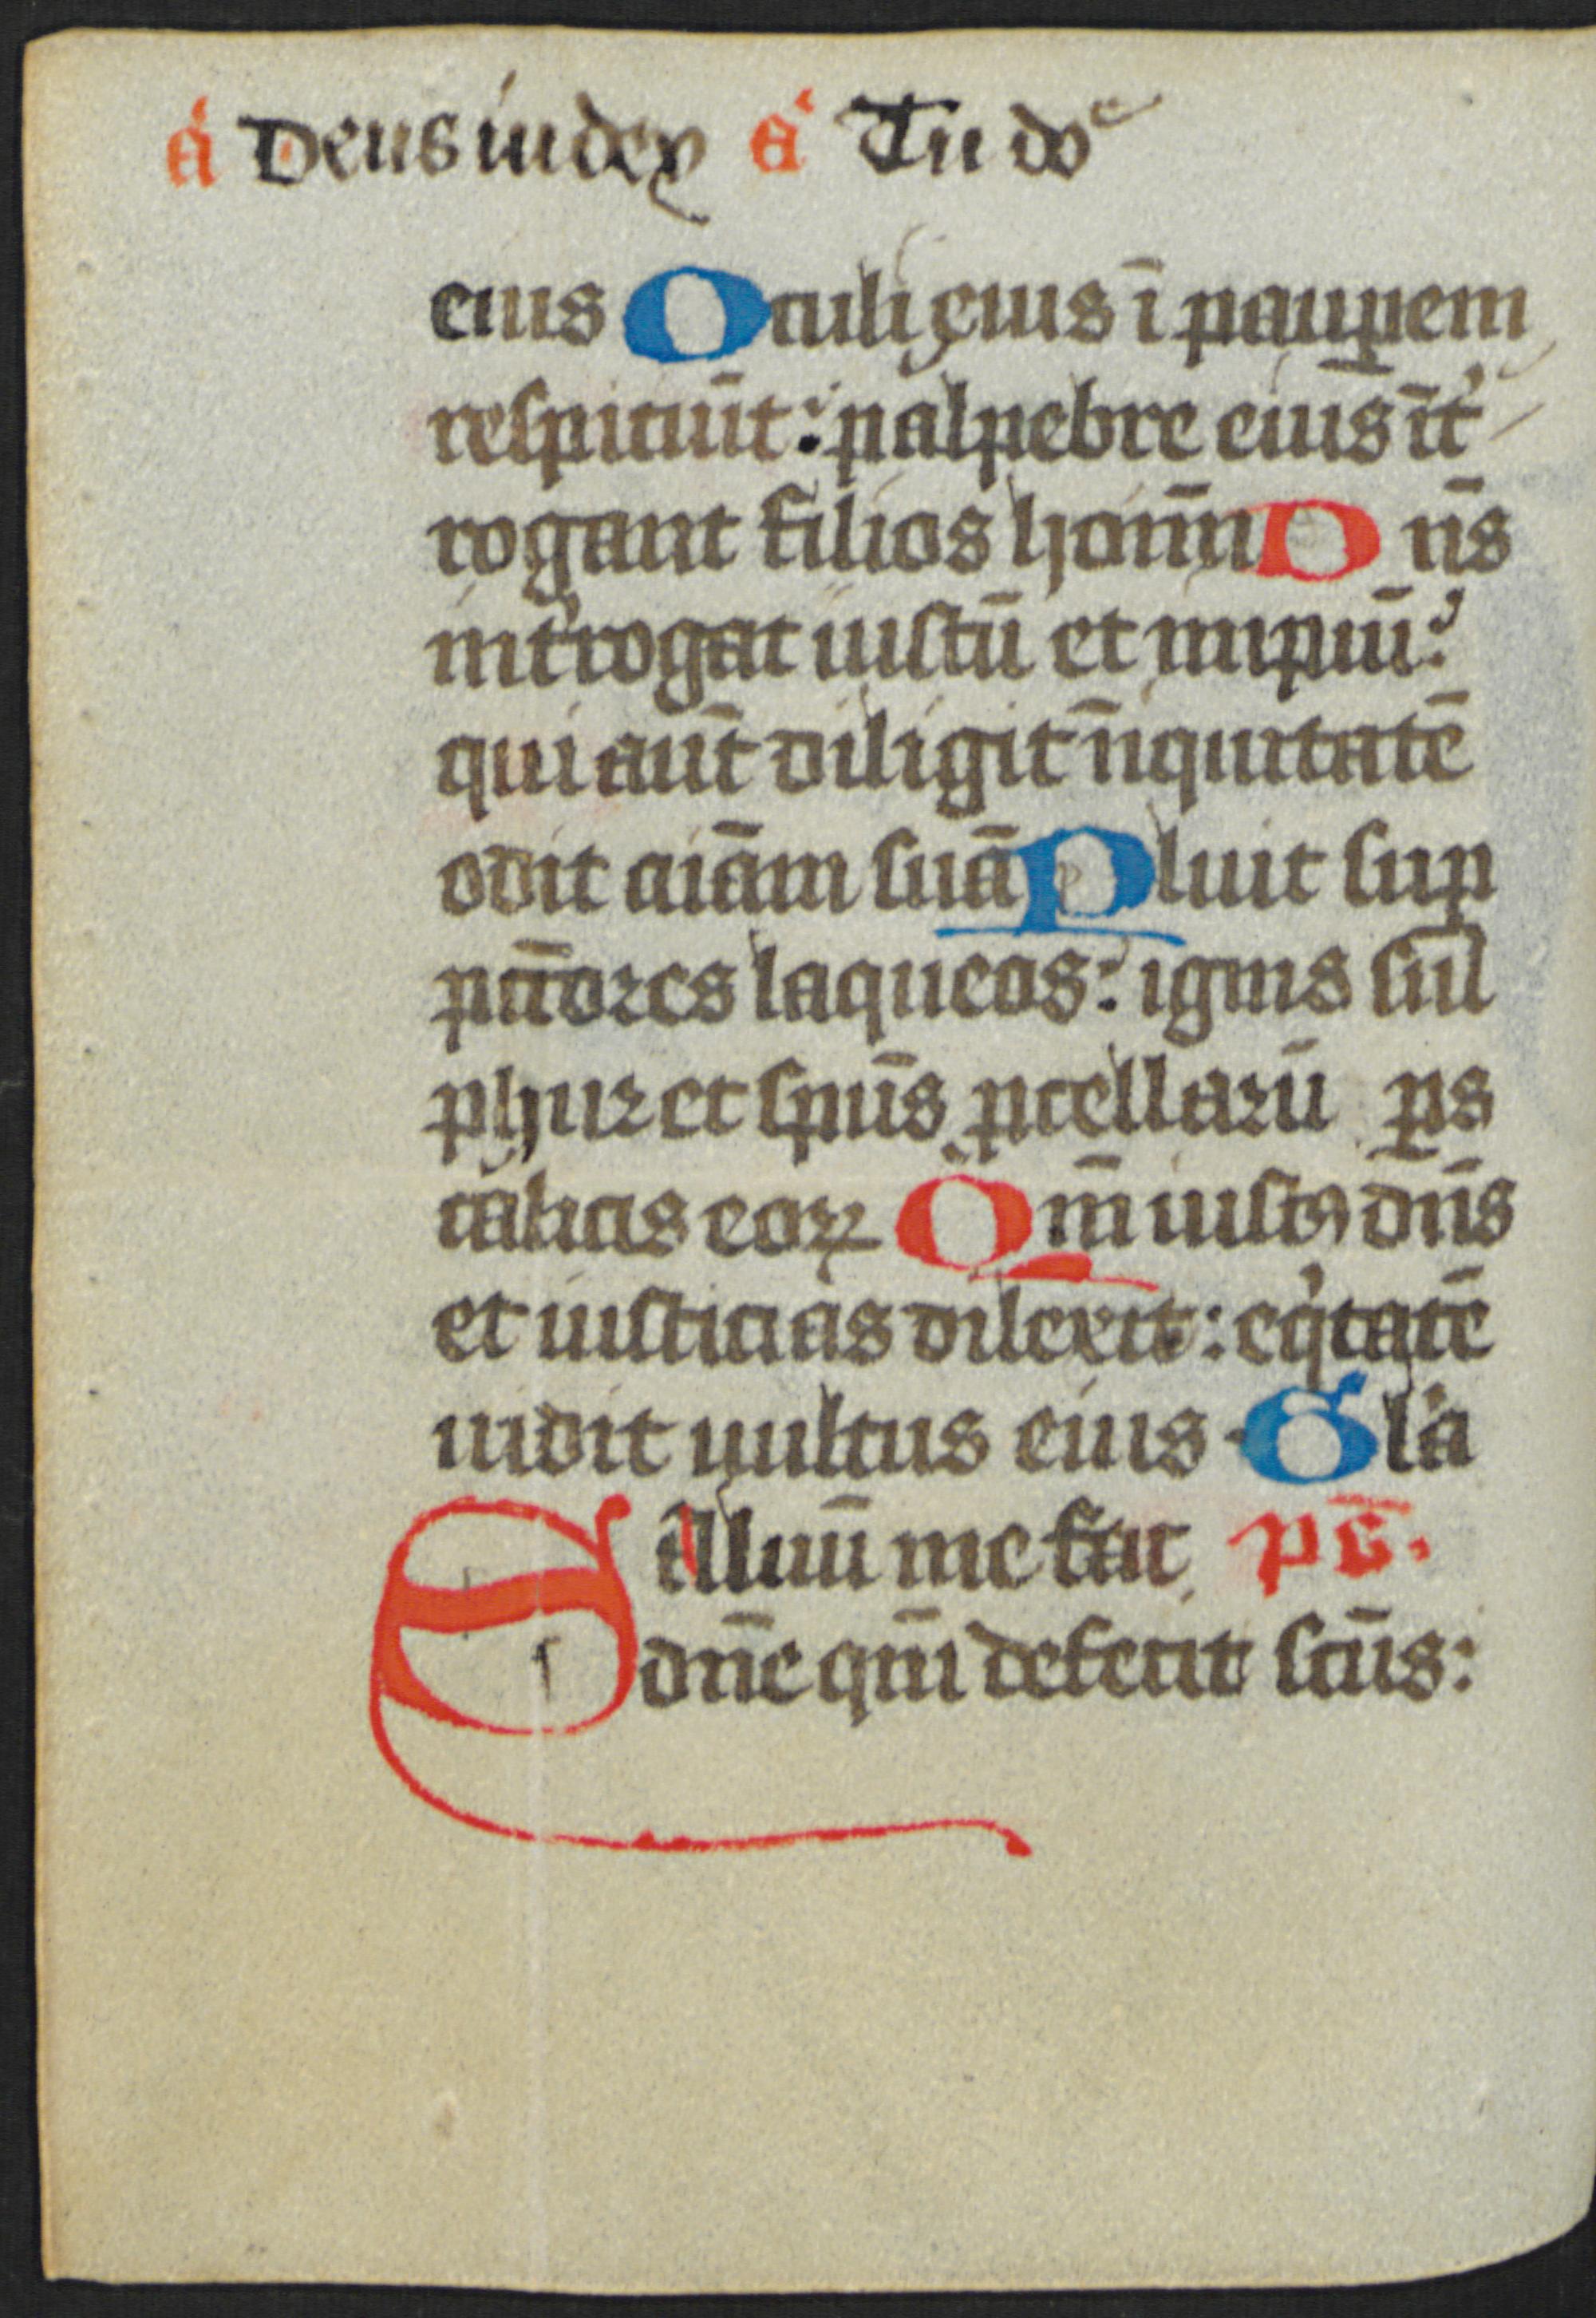 a̍ Deus iudex a̍ Tu doᵉ
eius Oculi eius ī paup̲em
respiciūt: palpebre eius īt̛
rogant filios homīū Dn̄s
int̛rogat iustū et impiū:
qui aūt diligit īiquitatē
odit aīam suā Pluit sup̲
pc̄cores laqueos: ignis sul
phur et sp̄us p̲cellarū p̲s
calicis eoꝝ Qm̄ iustꝰ dn̄s
et iusticias dilexit: eq̍tatē
uidit uultus eius Gl̄a
Saluū me fac p̄s.
dn̄e qm̄ defecit sc̄us: